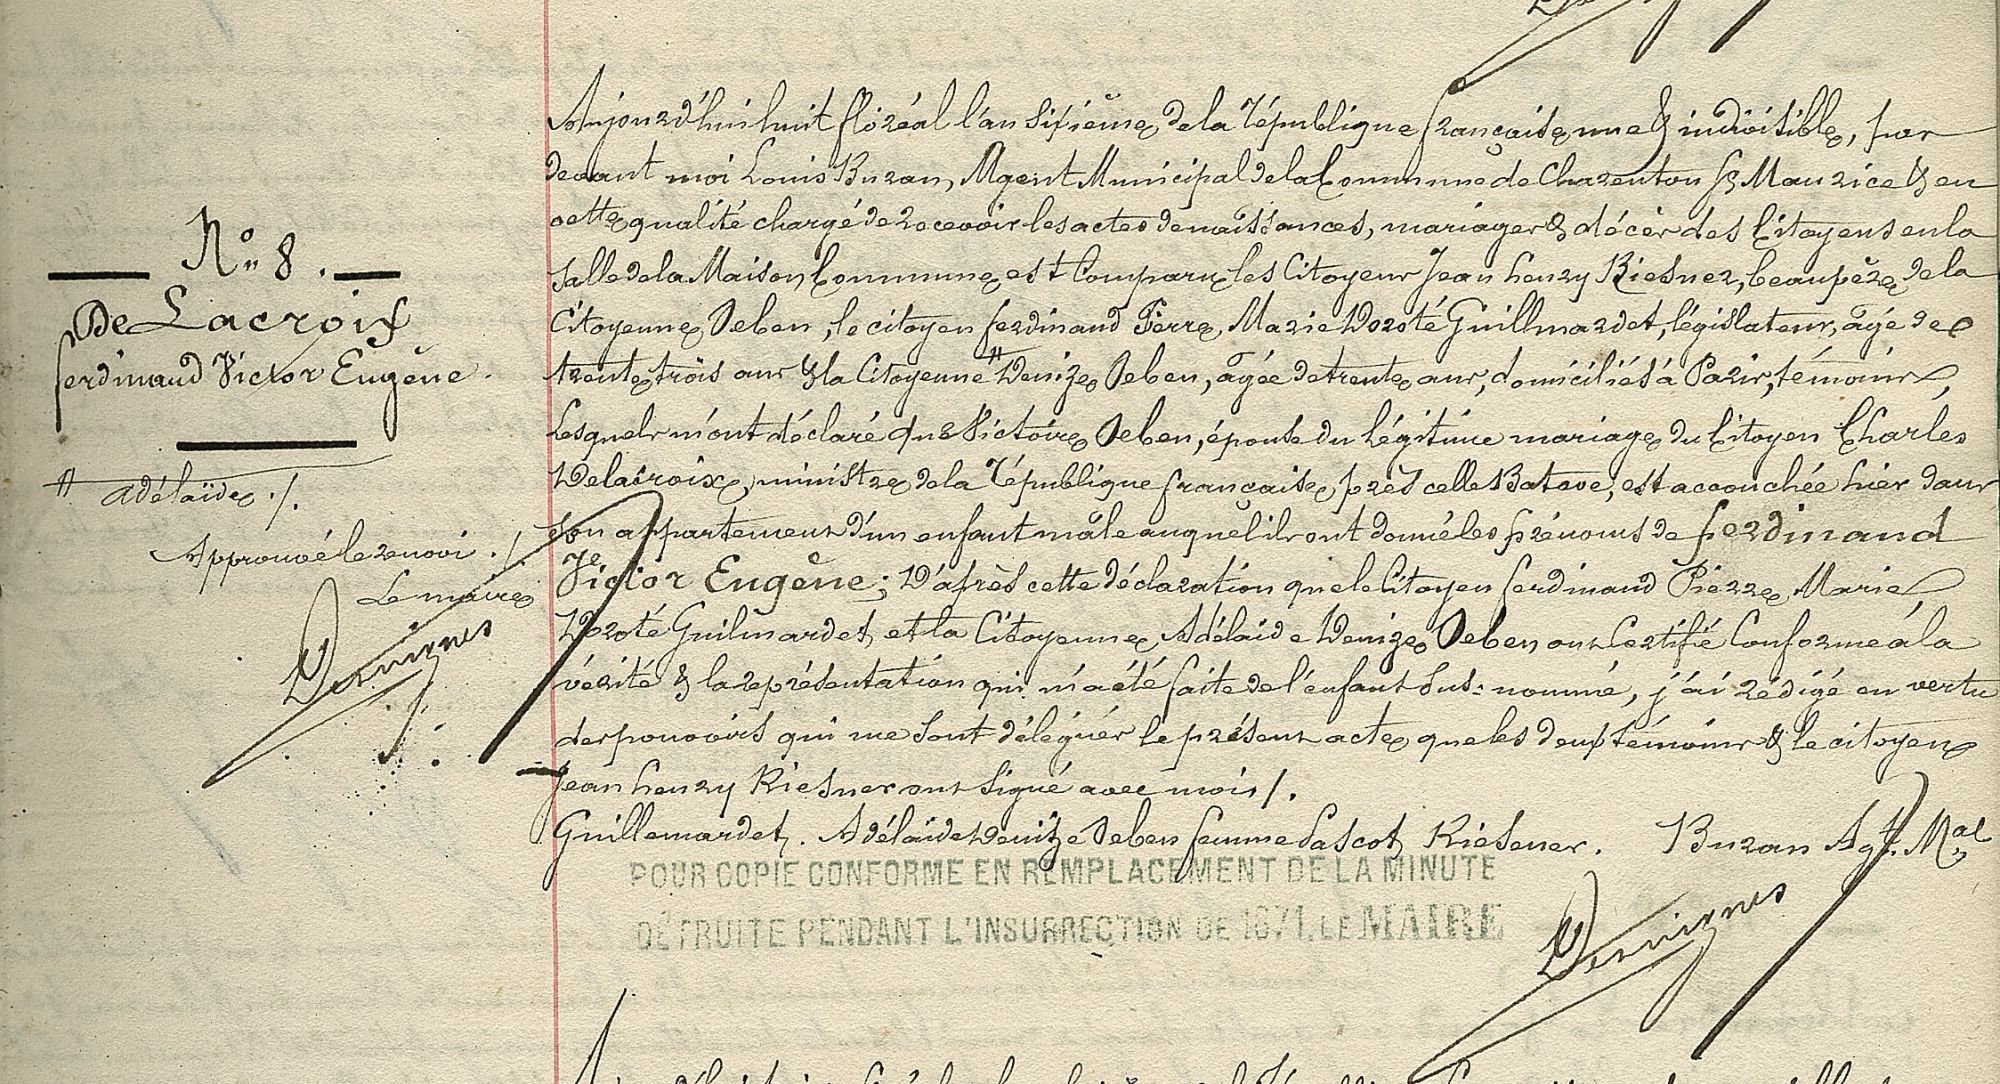 N° 8.
De Lacroix
ferdinand Victor Eugène.
# adélaïde ./.
Approuvé le renvoi ./.
Le maire
Aujourd'hui huit floréal l'an sixième de la République française une & indivisible, par
devant moi Louis Buran, Agent Municipal de la Commune de Charenton St Maurice & en
cette qualité chargé de recevoir les actes de naissances, mariages & décès des Citoyens en la
salle de la Maison Commune est Comparu les Citoyens Jean henry Riesner, beaupère de la
Citoyenne Oeben, le citoyen ferdinand Pierre, Marie Doroté Guillmardet, législateur, âgé de
trente trois ans & la Citoyenne # Denize Oeben, âgée de trente ans, domiciliés à Paris, témoins,
Lesquels m'ont déclaré que Victoire Oeben, épouse du légitime mariage du Citoyen Charles
Delacroix, ministre de la République française, près celle Batave, est accouchée hier dans
son appartement d'un enfant mâle auquel ils ont donné les prénoms de ferdinand
Victor Eugène; D'après cette déclaration que le Citoyen ferdinand Pierre, Marie,
Doroté Guilmardet, et la Citoyenne Adélaide Denize Oeben ont Certifié Conforme à la
vérité & la représentation qui m'a été faite de l'enfant sus-nommé, j'ai rédigé en vertu
des pouvoirs qui me sont délégués le présent acte que les deux témoins & le citoyen
Jean henry Riesner ont signé avec moi ./.
Guillemardet. Adélaïde Denize Oeben femme Pascot Riesener. Buran Agt. Mal.
POUR COPIE CONFORME EN REMPLACEMENT DE LA MINUTE
DÉTRUITE PENDANT L'INSURRECTION DE 1871, LE MAIRE